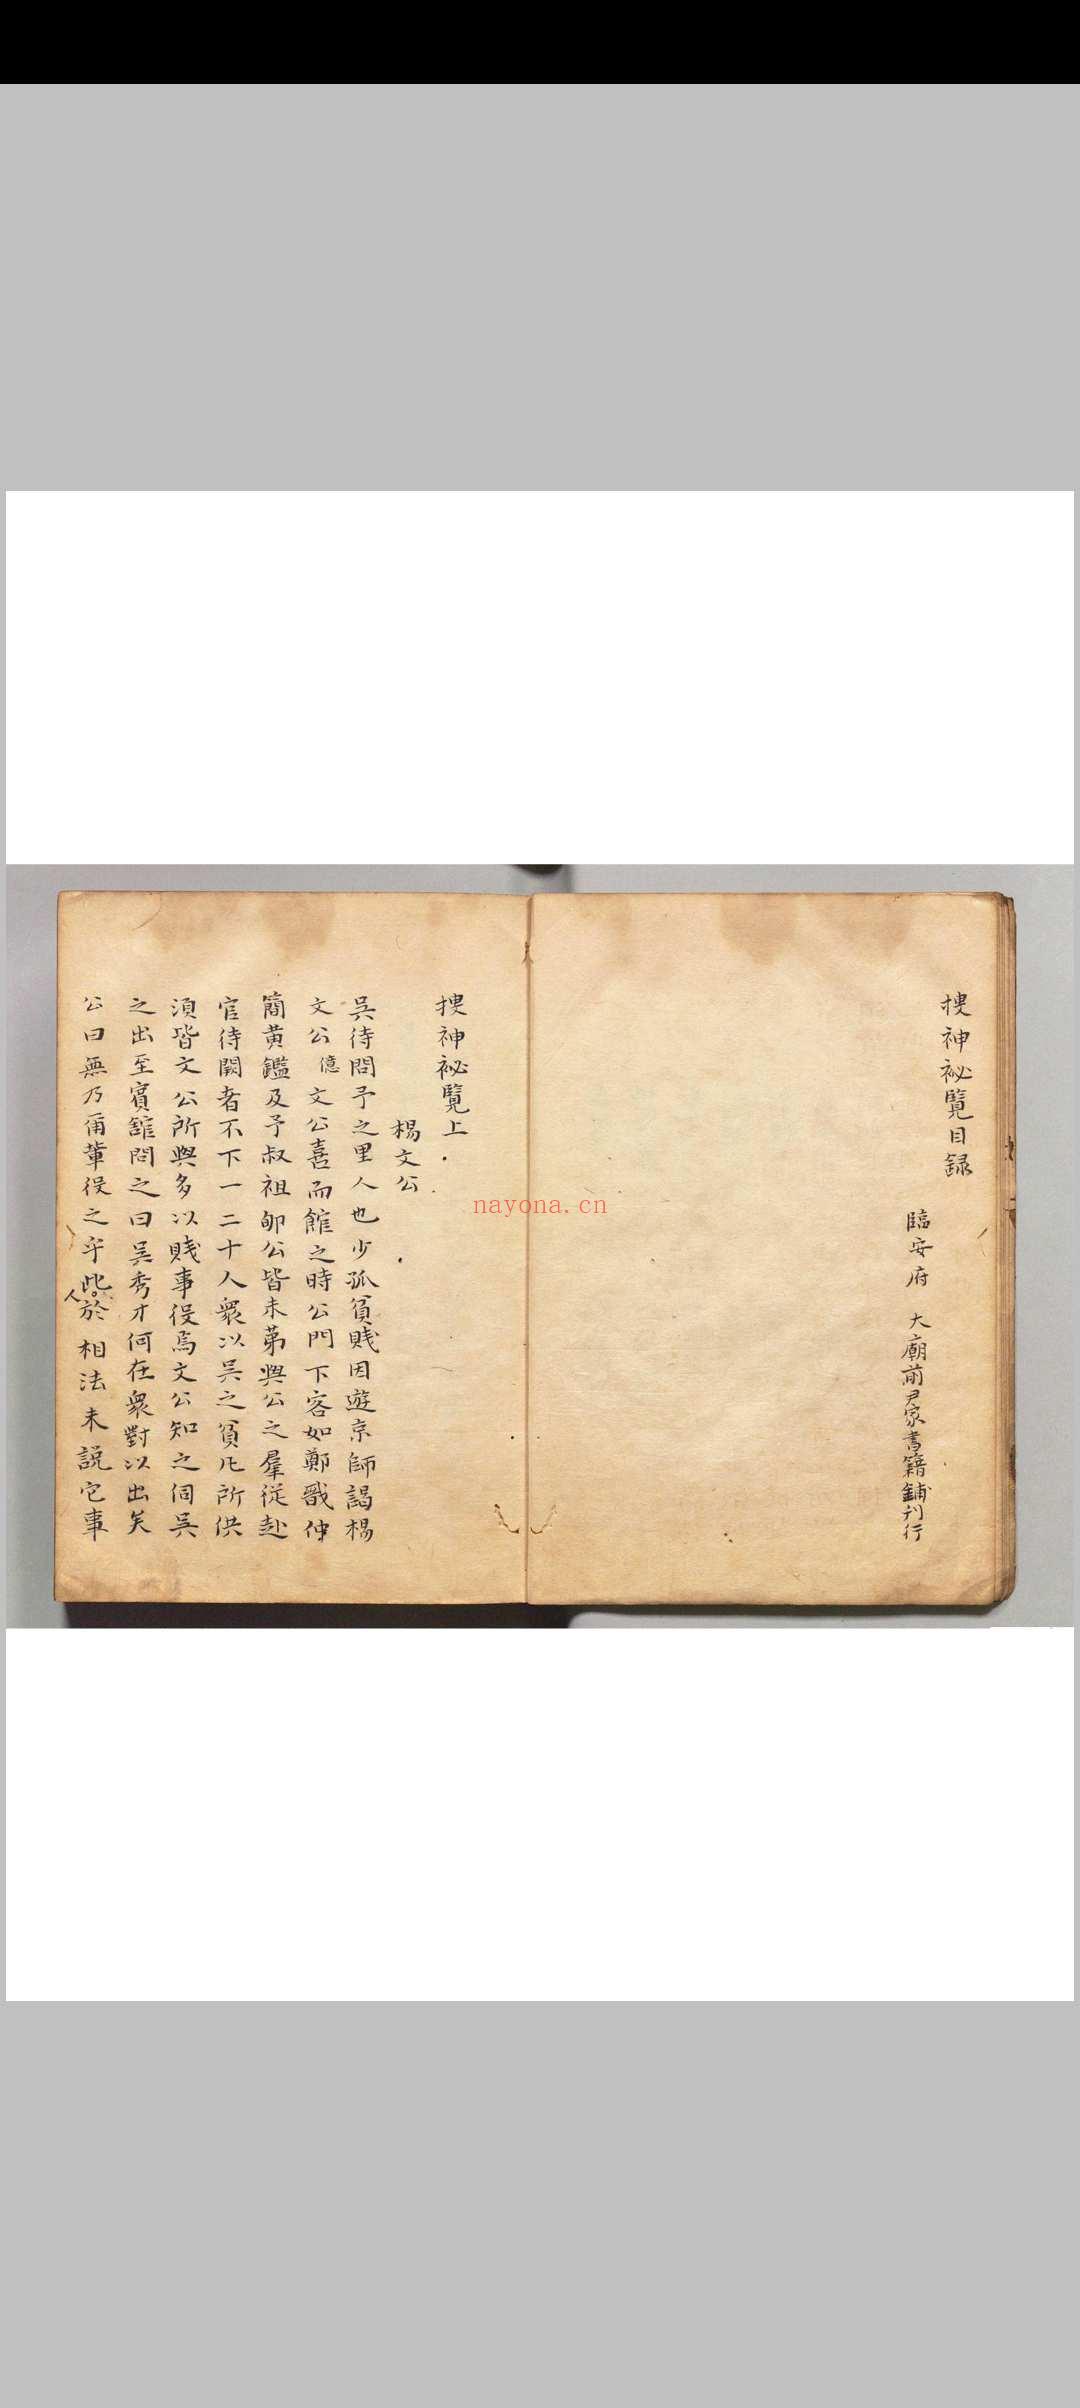 搜神袐覽目録
臨安府 大廟前尹家書籍鋪刋行
搜神袐覽上
楊文公
吳待問予之里人也少孤貧賤因遊京師謁楊
文公億文公喜而館之時公門下客如鄭戩仲
簡黄鑑及予叔祖郇公皆未第與公之羣從赴
官待闕者不下一二十人衆以吳之貧凡所供
湏皆文公所與多以賤事役焉文公知之伺吳
之出至賔舘問之曰吳秀才何在衆對以出矣
公曰無乃甭輩役之乎此人於相法未説它事
nayona.cn